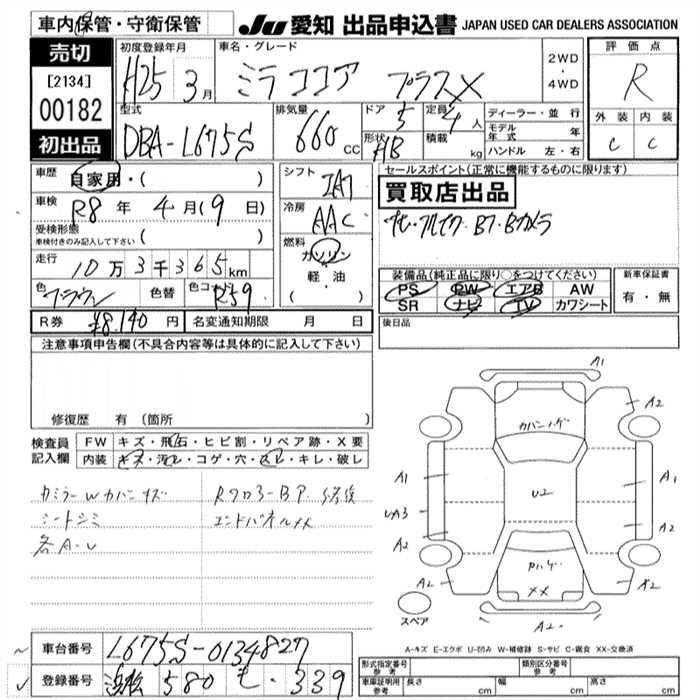 車内保管・守衛保管
JU 愛知 出品申込書 JAPAN USED CAR DEALERS ASSOCIATION
売切
[2134]
00182
初出品
初度登録年月
H25 3月
車名・グレード
ミラココア プラスX
2WD
・
4WD
評価点
R
外装 内装
C C
型式
DBA-L675S
排気量
660 cc
ドア 5
形状 HB
定員 4人
積載 kg
ディーラー・並行
モデル年式 年
ハンドル 左・右
車歴
自家用・( )
車検
R8年 4月(9日)
受検形態
車検付きのみ記入して下さい ( )
走行
10万3千365km
色 ブラウン
色替
色コード R59
シフト IAT
冷房 AAC
燃料
ガソリン
・
軽・油
( )
セールスポイント(正常に機能するものに限ります)
買取店出品
ナビ・フルセグ・BT・Bカメラ
装備品(純正品に限り○をつけてください)
PS PW エアB AW
SR ナビ TV カワシート
新車保証書
有・無
R券 ¥8,140円
名変通知期限 月 日
後日品
注意事項申告欄(不具合内容等は具体的に記入して下さい)
修復歴 有 (箇所 )
検査員記入欄
FW キズ・飛石・ヒビ割・リペア跡・X要
内装 キズ・汚レ・コゲ・穴・スレ・キレ・破レ
シートシミ
各A・U
エンドパネルXX
A1
A2
A2
A1
UA3
A2
A2
U2
A1
A2
A2
XX
A2
スペア
A-キズ E-エクボ U-凹み W-補修跡 S-サビ C-腐食 XX-交換済
車台番号 L675S-0134827
登録番号 浜松 580 も・339
形式指定番号 参考
類別区分番号 参考
車庫証明用 参考
長さ cm
幅 cm
高さ cm